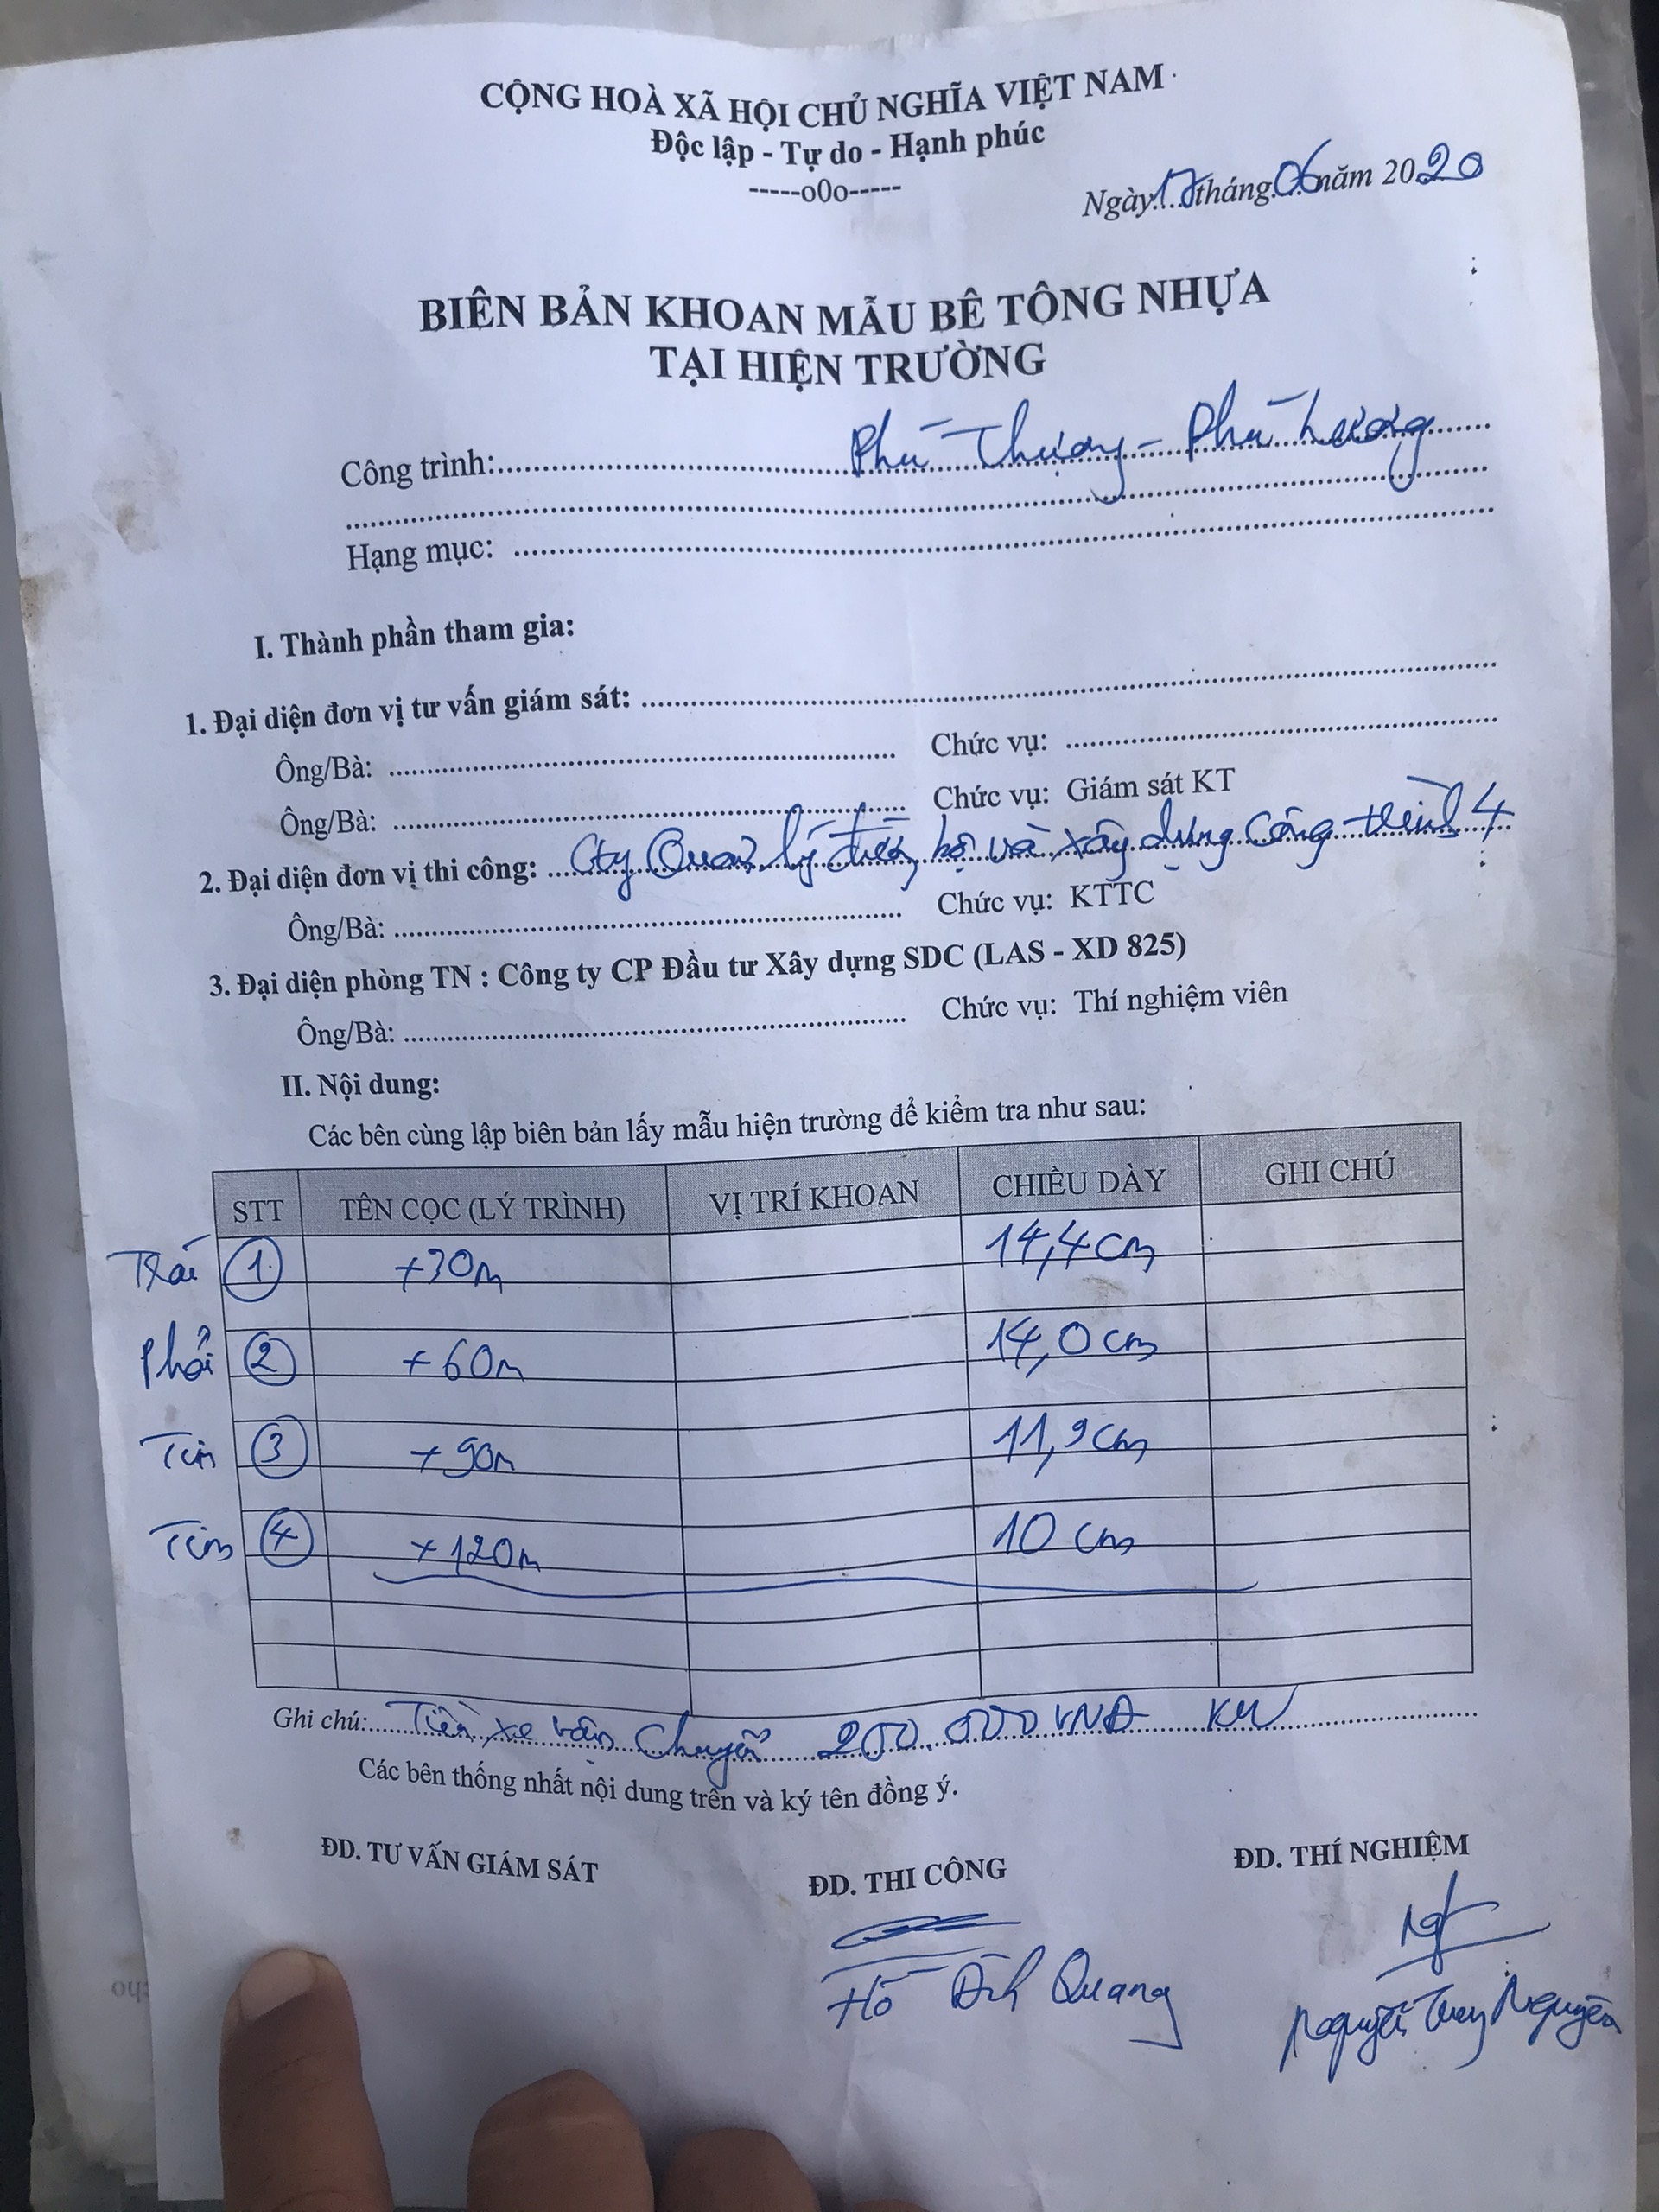 CỘNG HOÀ XÃ HỘI CHỦ NGHĨA VIỆT NAM
Độc lập - Tự do - Hạnh phúc
-----o0o-----
Ngày 17 tháng 06 năm 2020
BIÊN BẢN KHOAN MẪU BÊ TÔNG NHỰA
TẠI HIỆN TRƯỜNG
Công trình: Phú Thượng - Phú Lương
Hạng mục:
I. Thành phần tham gia:
1. Đại diện đơn vị tư vấn giám sát:
Ông/Bà: Chức vụ:
Ông/Bà: Chức vụ: Giám sát KT
2. Đại diện đơn vị thi công: Cty Quản lý đường bộ và xây dựng công trình 4
Ông/Bà: Chức vụ: KTTC
3. Đại diện phòng TN : Công ty CP Đầu tư Xây dựng SDC (LAS - XD 825)
Ông/Bà: Chức vụ: Thí nghiệm viên
II. Nội dung:
Các bên cùng lập biên bản lấy mẫu hiện trường để kiểm tra như sau:
STT TÊN CỌC (LÝ TRÌNH) VỊ TRÍ KHOAN CHIỀU DÀY GHI CHÚ
Trái 1 +30m 14,4cm
Phải 2 +60m 14,0cm
Tim 3 +90m 11,9cm
Tim 4 +120m 10cm
Ghi chú: Tiền xe vận chuyển 200.000 VNĐ
Các bên thống nhất nội dung trên và ký tên đồng ý.
ĐD. TƯ VẤN GIÁM SÁT ĐD. THI CÔNG ĐD. THÍ NGHIỆM
Hồ Đình Quang Nguyễn Nguyên